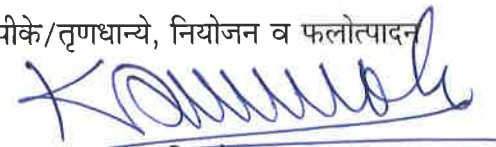 पीके/तृणधान्ये, नियोजन व फलोत्पादन